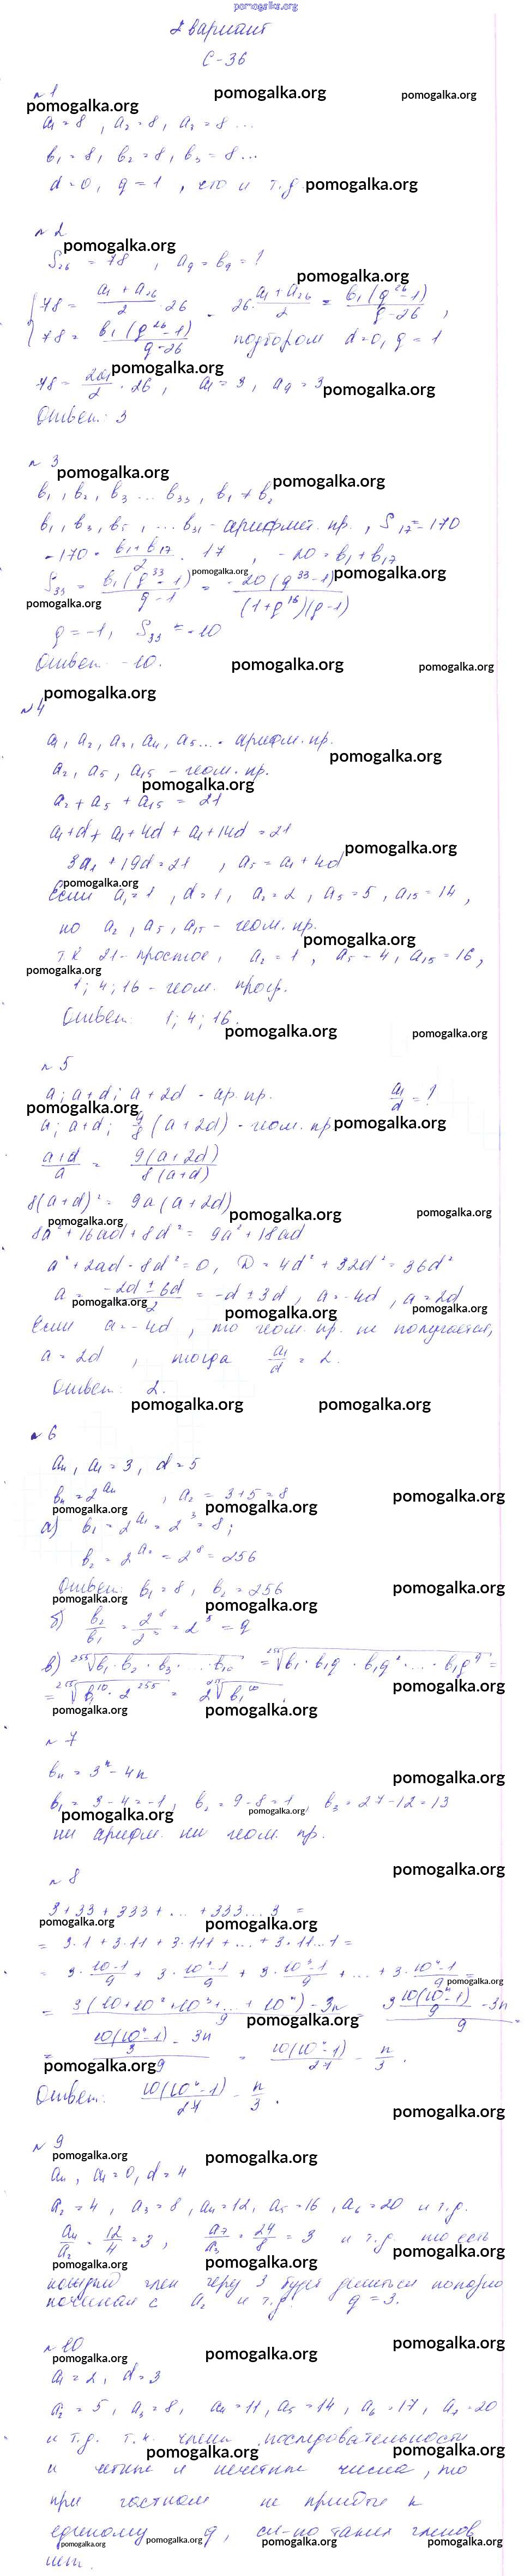 pomogalka.org
2 вариант
С-36
n 1
pomogalka.org pomogalka.org pomogalka.org
a₁ = 8, a₂ = 8, a₃ = 8 ...
b₁ = 8, b₂ = 8, b₃ = 8 ...
d = 0, q = 1, это и т.д. pomogalka.org
n 2
pomogalka.org
S₂₆ = 78, a₉ = b₉ = ?
pomogalka.org
78 = (a₁ + a₂₆)/2 · 26 . 26 · (a₁ + a₂₆)/2 = b₁(q²⁶ - 1)/(q - 26),
78 = b₁(q²⁶ - 1)/(q - 26) подбором d = 0, q = 1
pomogalka.org
78 = 2a₁/2 · 26, a₁ = 3, a₉ = 3 pomogalka.org
Ответ: 3
n 3
pomogalka.org pomogalka.org
b₁, b₂, b₃ ... b₃₃, b₁ ≠ b₂
b₁, b₃, b₅, ... b₃₁ - арифмет. пр., S₁₇ = -170
-170 = (b₁ + b₁₇)/2 · 17, -20 = b₁ + b₁₇
pomogalka.org pomogalka.org
S₃₃ = b₁(q³³ - 1)/(q - 1) = -20(q³³ - 1)/((1 + q¹⁶)(q - 1))
pomogalka.org
q = -1, S₃₃ = -10
Ответ: -10. pomogalka.org pomogalka.org
n 4 pomogalka.org
a₁, a₂, a₃, a₄, a₅ ... - арифм. пр.
a₂, a₅, a₁₅ - геом. пр. pomogalka.org
pomogalka.org
a₂ + a₅ + a₁₅ = 21
a₁ + d + a₁ + 4d + a₁ + 14d = 21
3a₁ + 19d = 21, a₅ = a₁ + 4d pomogalka.org
pomogalka.org
Если a₁ = 1, d = 1, a₂ = 2, a₅ = 5, a₁₅ = 14,
но a₂, a₅, a₁₅ - геом. пр.
pomogalka.org
т.к 21 - простое, a₂ = 1, a₅ = 4, a₁₅ = 16,
pomogalka.org
1; 4; 16 - геом. прогр.
Ответ: 1; 4; 16.
pomogalka.org pomogalka.org
n 5
a; a+d; a+2d - ар. пр. a₁/d = ?
pomogalka.org
a; a+d; 9/8 (a+2d) - геом. пр pomogalka.org
(a+d)/a = 9(a+2d)/8(a+d)
8(a+d)² = 9a(a+2d)
pomogalka.org pomogalka.org pomogalka.org
8a² + 16ad + 8d² = 9a² + 18ad
a² + 2ad - 8d² = 0, D = 4d² + 32d² = 36d²
a = (-2d ± 6d)/2 = -d ± 3d, a = -4d, a = 2d
pomogalka.org pomogalka.org pomogalka.org
Если a = -4d, то геом. пр. не получается,
a = 2d, тогда a₁/d = 2.
Ответ: 2.
pomogalka.org pomogalka.org
n 6
aₙ, a₁ = 3, d = 5
bₙ = 2^aₙ, a₂ = 3+5 = 8 pomogalka.org
pomogalka.org pomogalka.org
а) b₁ = 2^a₁ = 2³ = 8;
b₂ = 2^a₂ = 2⁸ = 256
Ответ: b₁ = 8, b₂ = 256 pomogalka.org
pomogalka.org pomogalka.org
б) b₂/b₁ = 2⁸/2³ = 2⁵ = q
в) ²⁵⁵√(b₁·b₂·b₃·...·b₁₀) = ²⁵⁵√(b₁·b₁q·b₁q²·...·b₁q⁹) =
pomogalka.org
= ²⁵⁵√(b₁¹⁰·2²⁵⁵) = 2 ²⁵⁵√(b₁¹⁰).
pomogalka.org pomogalka.org
n 7
bₙ = 3ⁿ - 4n pomogalka.org
b₁ = 3-4 = -1, b₂ = 9-8 = 1, b₃ = 27-12 = 13
pomogalka.org pomogalka.org
ни арифм. ни геом. пр.
pomogalka.org
n 8
3 + 33 + 333 + ... + 333...3 =
pomogalka.org pomogalka.org
= 3·1 + 3·11 + 3·111 + ... + 3·11...1 =
= 3·(10-1)/9 + 3·(10²-1)/9 + 3·(10³-1)/9 + ... + 3·(10ⁿ-1)/9 =
pomogalka.org
= (3(10 + 10² + 10³ + ... + 10ⁿ) - 3n)/9 = (3·10(10ⁿ-1)/9 - 3n)/9 =
pomogalka.org
= (10(10ⁿ-1)/3 - 3n)/9 = 10(10ⁿ-1)/27 - n/3.
pomogalka.org
Ответ: 10(10ⁿ-1)/27 - n/3.
pomogalka.org
n 9
pomogalka.org pomogalka.org
aₙ, a₁ = 0, d = 4
a₂ = 4, a₃ = 8, a₄ = 12, a₅ = 16, a₆ = 20 и т.д.
a₄/a₂ = 12/4 = 3, a₇/a₃ = 24/8 = 3 и т.д. то есть
pomogalka.org
pomogalka.org pomogalka.org
каждый член через 3 будет делиться попарно
начиная с a₂ и т.д. q = 3.
n 10 pomogalka.org
pomogalka.org pomogalka.org
a₁ = 2, d = 3
a₂ = 5, a₃ = 8, a₄ = 11, a₅ = 14, a₆ = 17, a₇ = 20
и т.д. т.к. члены последовательности
pomogalka.org pomogalka.org
и четные и нечетные числа, то
при частном не придете к
единому q, сл-но таких членов
pomogalka.org pomogalka.org pomogalka.org pomogalka.org
нет.